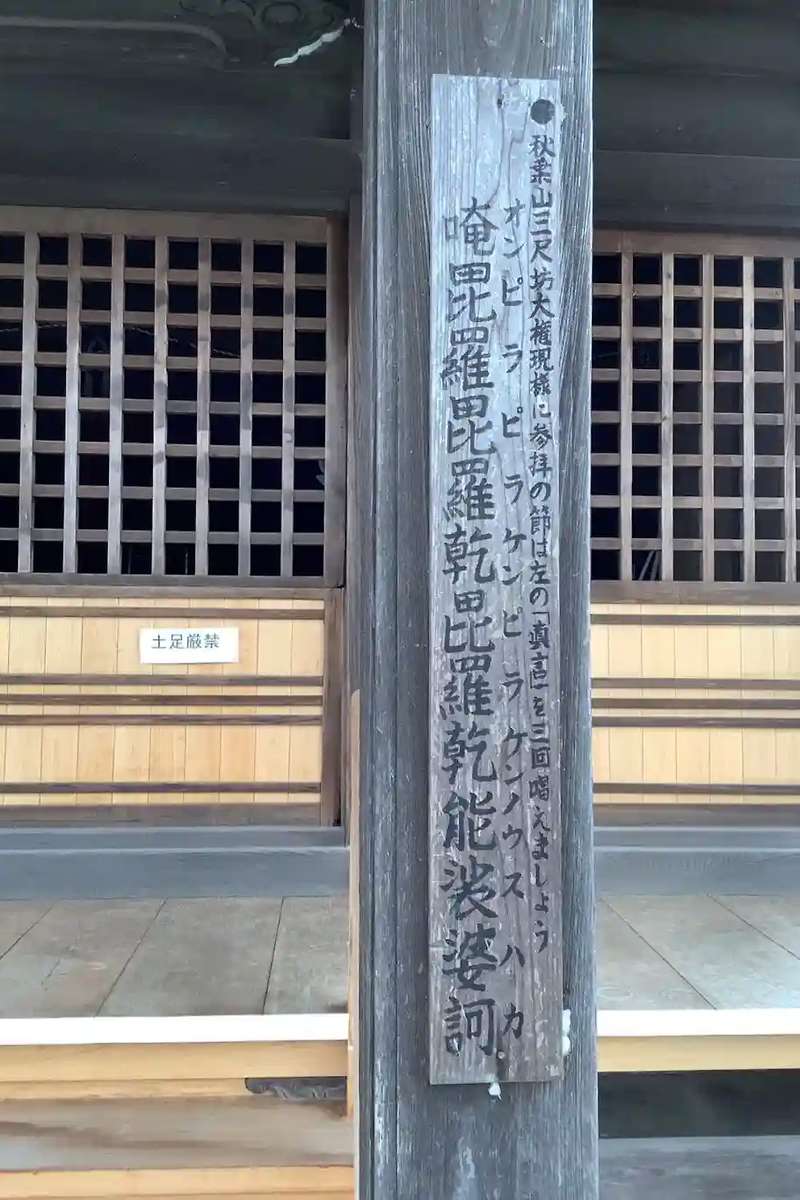 ●秋葉山三尺坊大権現様に参拝の節は左の「眞言」を三回唱えましょう
オンピラピラケンピラケンノウスハカ
唵毘羅毘羅乾毘羅乾能裟婆訶
土足厳禁